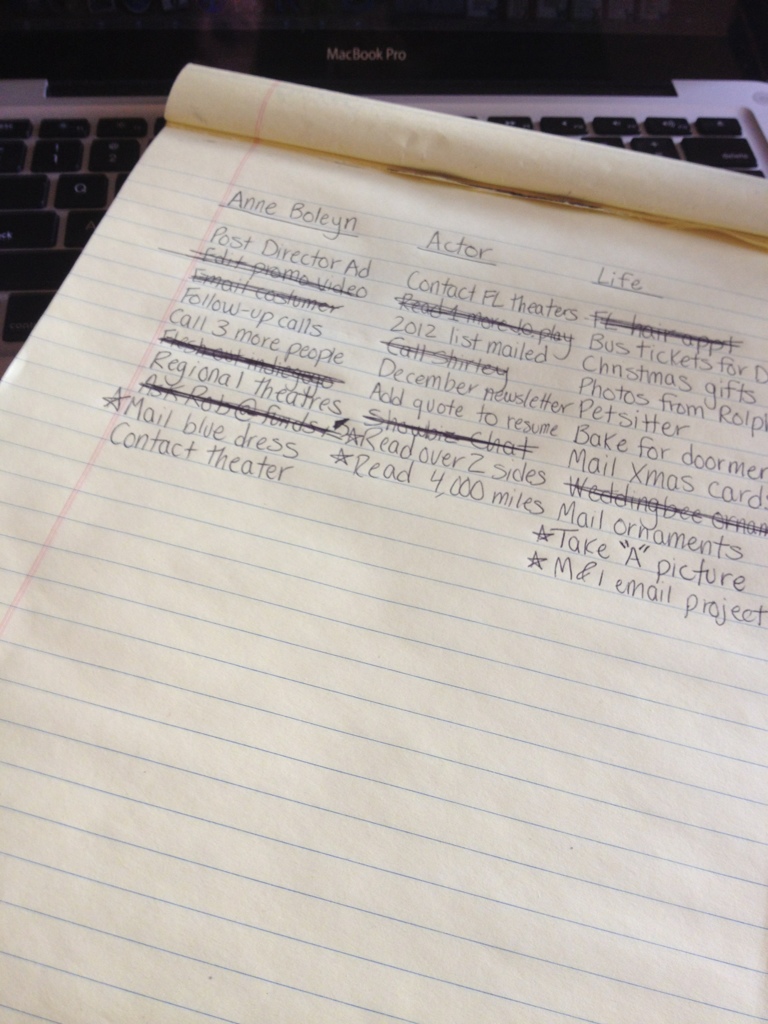 MacBook Pro
Anne Boleyn
Post Director Ad
Edit promo video
Email costumer
Follow-up calls
Call 3 more people
Regional theatres
Ask Rob @ funds
☆Mail blue dress
Contact theater
Actor
Contact FL theaters
Read 1 more to play
2012 list mailed
Call Shirley
December newsletter
Add quote to resume
chat
☆Read over 2 sides
☆Read 4,000 miles
Life
FL hair appt
Bus tickets for D
Christmas gifts
Photos from Rolph
Petsitter
Bake for doormen
Mail Xmas cards
Weddingbee ornam
Mail ornaments
☆Take "A" picture
☆M&I email project
1
2
Q
A
delete